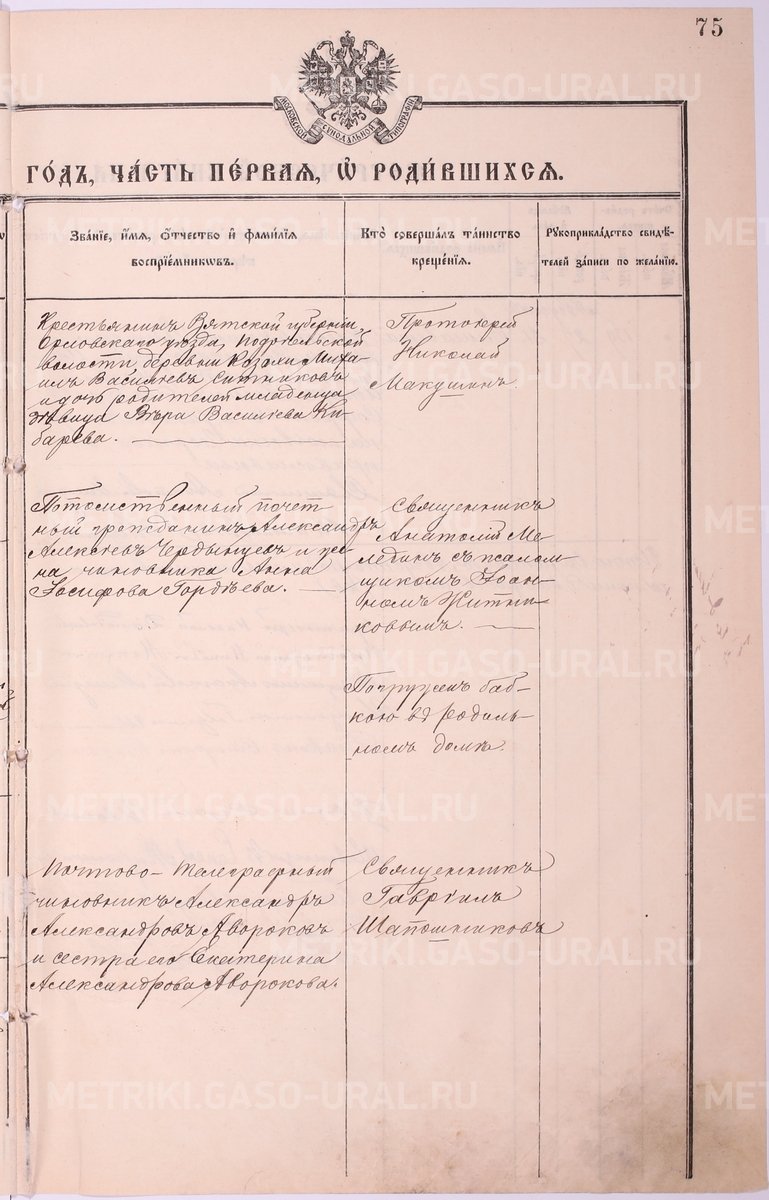 75
МОСКОВСКОЙ СѴНОДАЛЬНОЙ ТИПОГРАФІИ
ГО́ДЪ, ЧА́СТЬ ПЕ́РВАЯ, Ѽ РОДИ́ВШИХСЯ.
Зва́нїе, и́мя, ѻ́тчество и҆ фами́лїя
воспрїе́мникѡвъ.
Кто̀ соверша́лъ та́инство
креще́нїя.
Рꙋкоприкла́дство свидѣ́-
телей за́писи по жела́нїю.
Крестьянинъ Вятской губерніи,
Орловскаго уѣзда, Подрельской
волости деревни Козохи Миха-
илъ Василіевъ Ситниковъ
и дочь родителей младенца
дѣвица Вѣра Василіева Ки-
барева.
Протоіерей
Николай
Макушинъ.
Потомственный почет
ный гражданинъ Александръ
Алексѣевъ Чердынцевъ и же-
на чиновника Анна
Іосифова Гордѣева.
Священникъ
Анатолій Ме-
лединъ съ псалом
щикомъ Іоан-
номъ Житни-
ковымъ.
Погруженъ баб-
кою въ родиль-
номъ домѣ.
Почтово-телеграфный
чиновникъ Александръ
Александровъ Авороковъ
и сестра его Екатерина
Александрова Аворокова.
Священникъ
Гавріилъ
Шапошниковъ
METRIKI.GASO-URAL.RU